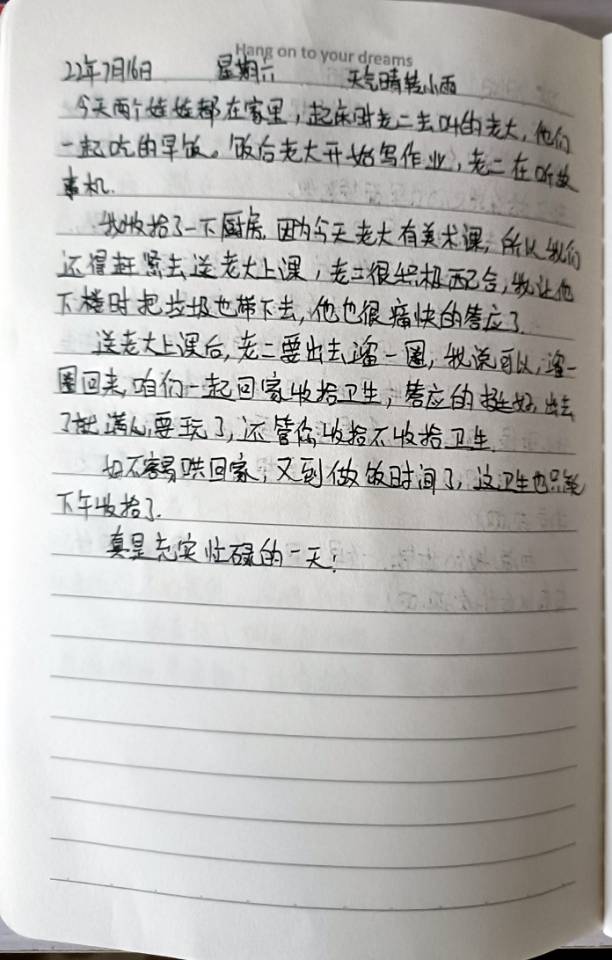 Hang on to your dreams
22年7月16日 星期六 天气晴转小雨
今天两个娃娃都在家里，起床时老二去叫的老大，他们
一起吃的早饭。饭后老大开始写作业，老二在听故
事机.
我收拾了一下厨房，因为今天老大有美术课，所以我们
还得赶紧去送老大上课，老二很积极配合，我让他
下楼时把垃圾也带下去，他也很痛快的答应了.
送老大上课后，老二要出去溜一圈，我说可以，溜一
圈回来，咱们一起回家收拾卫生，答应的挺好，出去
了就满心要玩了，还管你收拾不收拾卫生.
好不容易哄回家，又到做饭时间了，这卫生也只能
下午收拾了.
真是充实忙碌的一天！